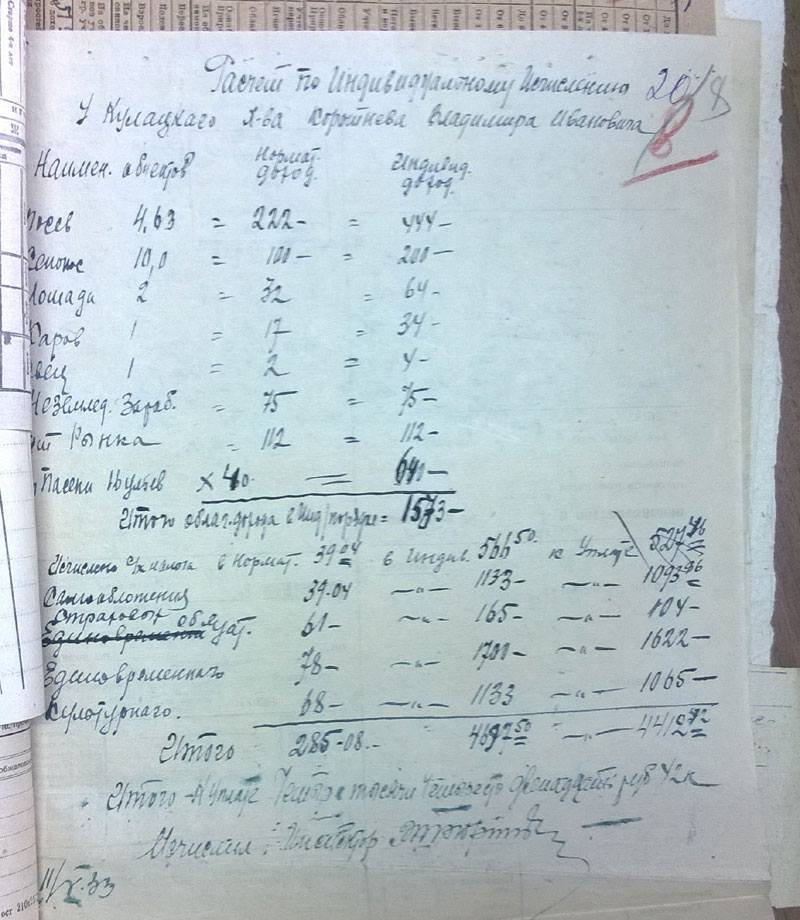 Расчет по Индивидуальному Исчислению
У Кулацкаго х-ва Коротнева Владимира Ивановича
Наимен. обиектов нормат. доход. Индивид. доход.
Посев 4,63 = 222- = 444-
Сенокос 10,0 = 100- = 200-
Лошади 2 = 32 = 64-
Каров 1 = 17 = 34-
Овец 1 = 2 = 4-
Неземлед. Зараб. = 75 = 75-
От Рынка = 112 = 112-
Пасеки Ульев × 40. = 640-
Итого облаг. дохода в Инд/порядке = 1573-
Исчислено с/х налога в нормат. 39 04 в индив. 566 50. к Уплате 527 46
Самообложения 39-04 -"- 1133- -"- 1093 96
Страховых обязат. 61- -"- 165- -"- 104-
Единовременнаго 78- -"- 1700- -"- 1622-
Культурнаго. 68- -"- 1133 -"- 1065-
Итого 285-08.- 4697 50 -"- 4412 42
Итого к Уплате Четыре тысячи Четыреста Двенадцать руб 42к
Исчислил: Инспектор
11/V-33